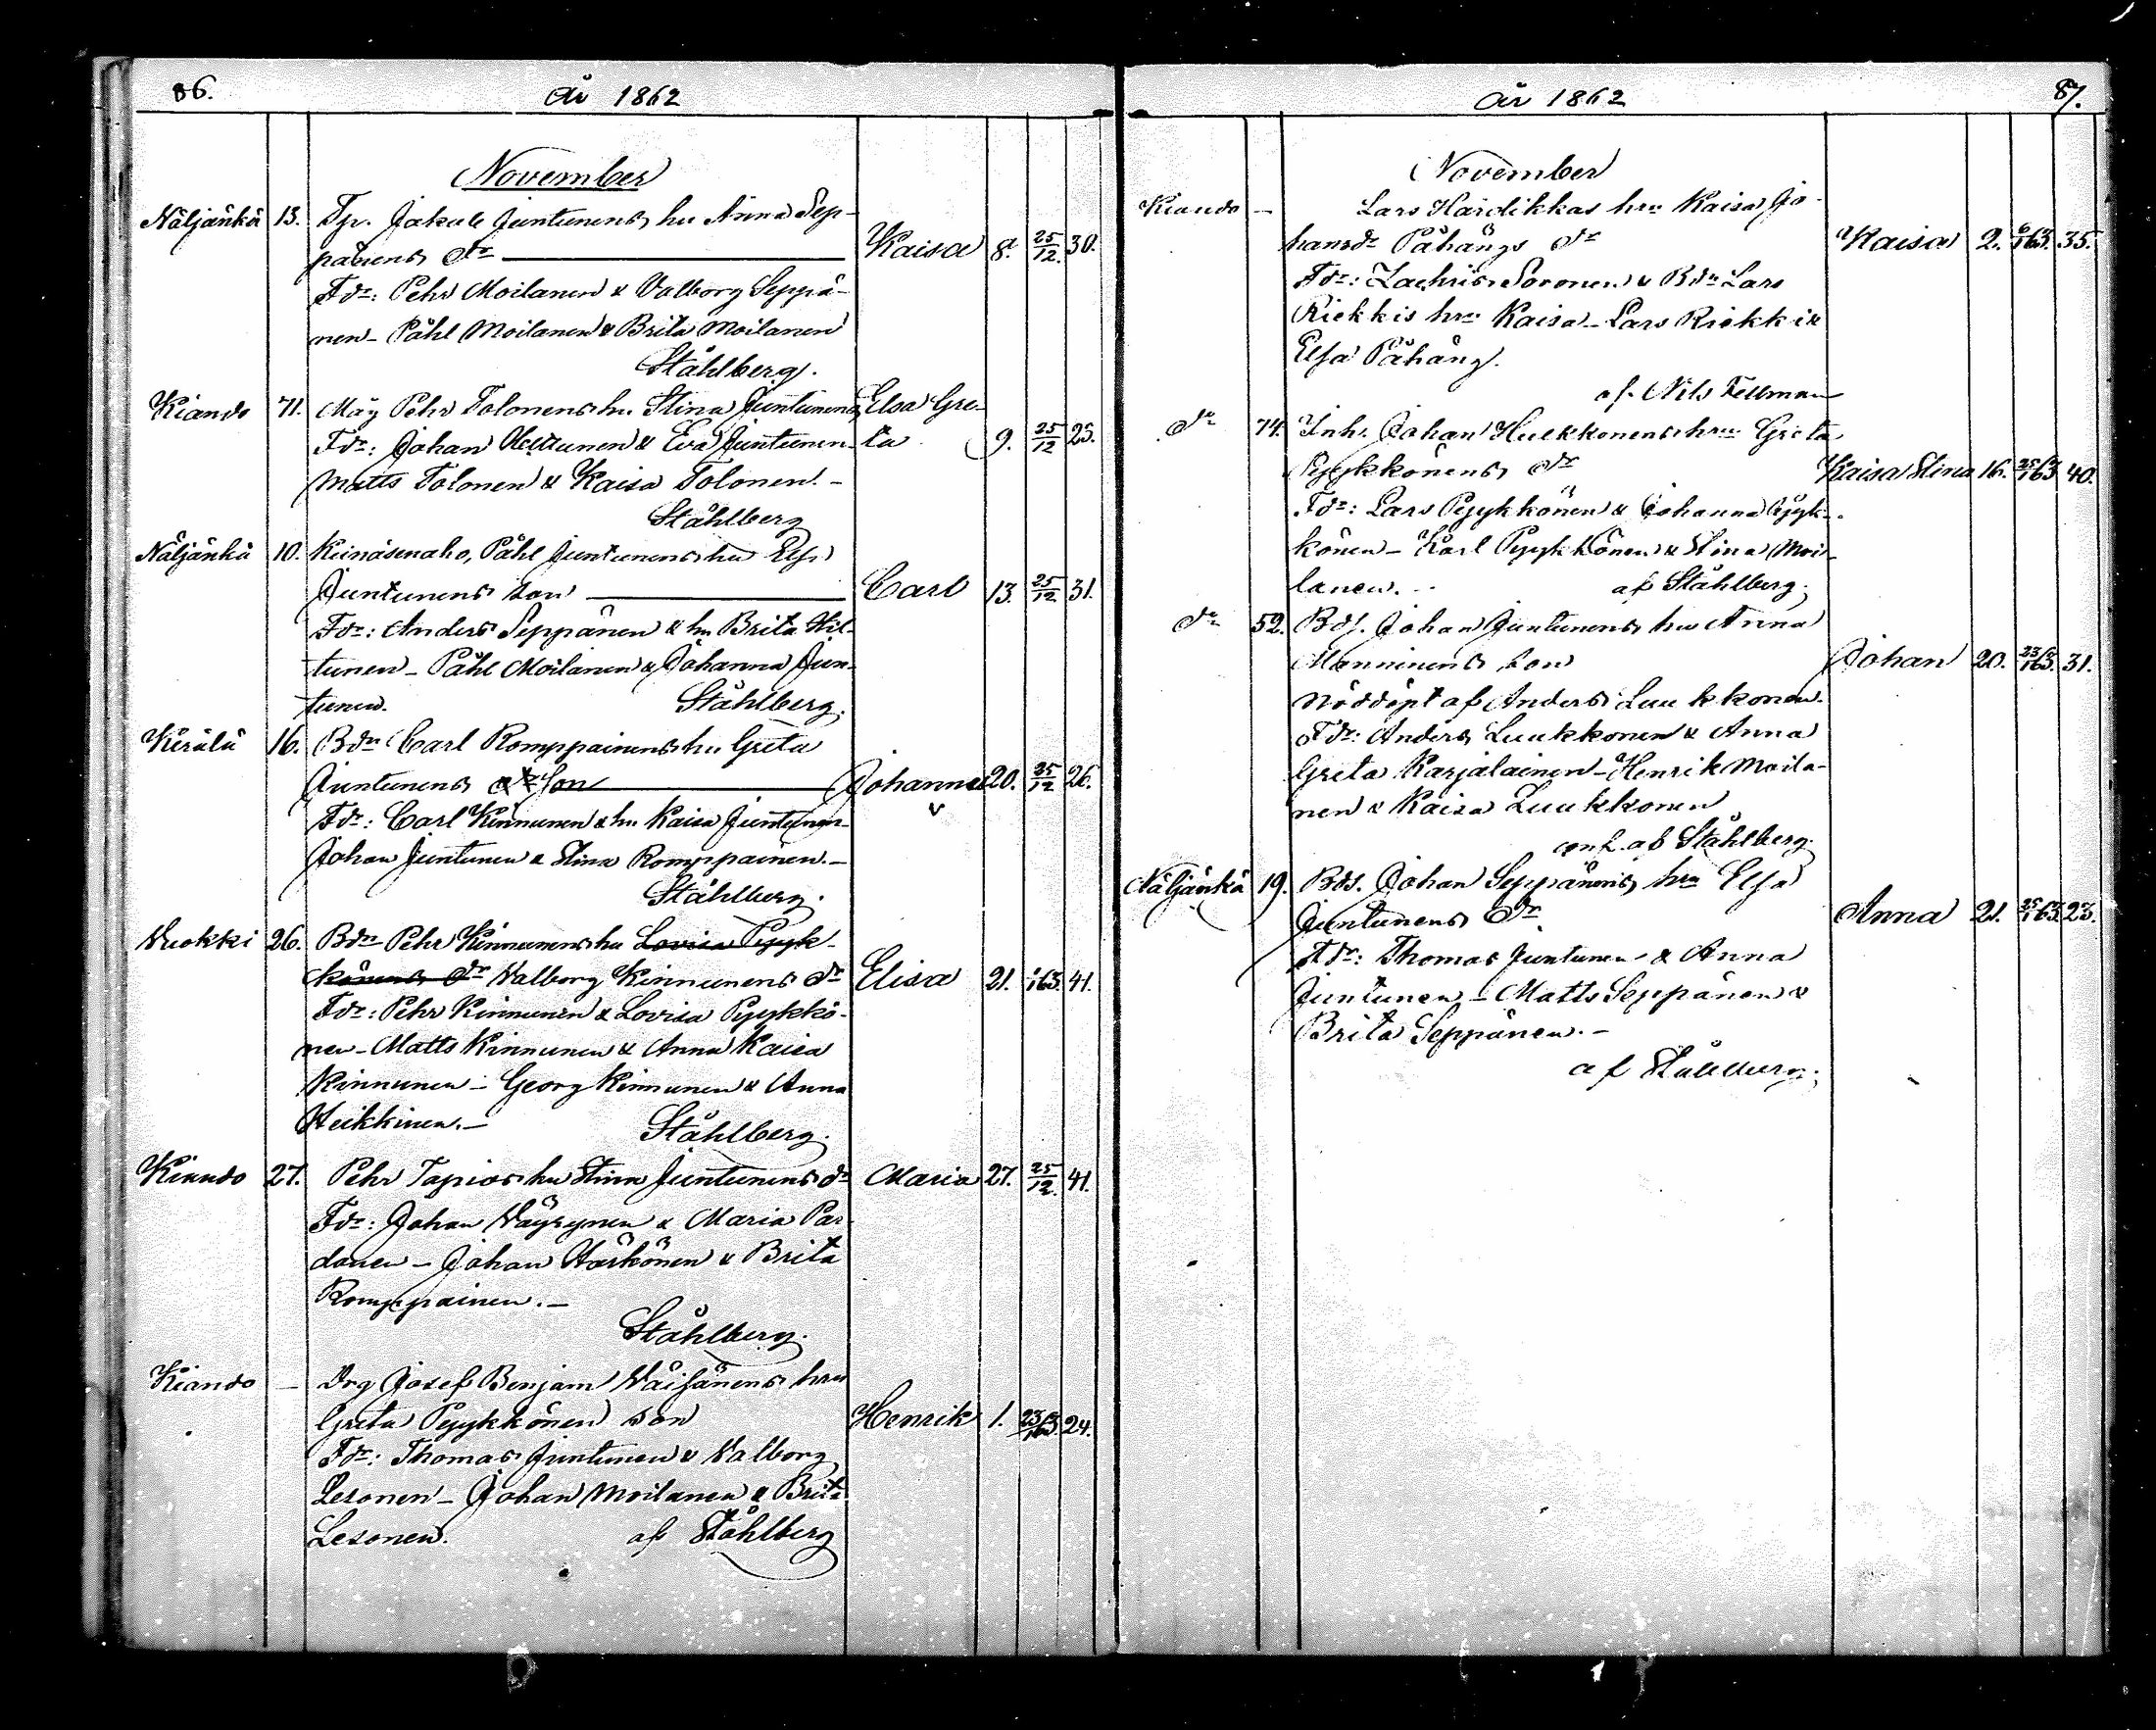 86.
År 1862
November
Näljänkä 13. Tp. Jakob Juntunens hu Anna Sep-
pänens dr Kaisa 8. 25/12. 30.
Fdr: Pehr Moilanen & Valborg Seppä-
nen - Påhl Moilanen & Brita Moilanen
Ståhlberg.
Kiando 71. Måg Pehr Tolonens hu Stina Juntunens Elsa Gre-
Fdr: Johan & Eva Juntunen - ta 9. 25/12 25.
Matts Tolonen & Kaisa Tolonen. -
Ståhlberg
Näljänkä 10. Keinäsenaho, Påhl Juntunens hu Elsa
Juntunens son Carl 13. 25/12. 31.
Fdr: Anders Seppänen & hu Brita Hil-
tunen - Påhl Moilanen & Johanna Jun-
tunen. Ståhlberg.
Kerälä 16. Bdn Carl Romppainens hu Greta
Juntunens dr son Johannes 20. 25/12 26.
Fdr: Carl Kinnunen & hu Kaisa Juntunen -
Johan Juntunen & Stina Romppainen. -
Ståhlberg.
Vuokki 26. Bdn Pehr Kinnunens hu Lovisa Pyyk-
könens dr Valborg Kinnunens dr Elisa 21. 63. 41.
Fdr: Pehr Kinnunen & Lovisa Pyykkö-
nen - Matts Kinnunen & Anna Kaisa
Kinnunen - Georg Kinnunen & Anna
Heikkinen. - Ståhlberg.
Kiando 27. Pehr Tapios hu Stina Juntunens dr Maria 27. 25/12. 41.
Fdr: Johan Väyrynen & Maria Par-
danen - Johan Härkönen & Brita
Romppainen. -
Ståhlberg.
Kiando - Drg Josef Benjam Väisänens hru
Greta Pyykkönen son Henrik 1. 23/1 63. 24.
Fdr: Thomas Juntunen & Valborg
Lesonen - Johan Moilanen & Brita
Lesonen. af Ståhlberg
År 1862
87.
November
Kiando - Lars Hardikkas hru Kaisa Jo-
hansdr Påhängs dr Kaisa 2. 6/1 63. 35.
Fdr: Zachris Soronen & Bdn Lars
Riekkis hru Kaisa - Lars Riekki &
Elsa Påhäng.
af Nils Fellman
dr 74. Inh. Johan Hulkkonens hru Greta
Pyykkönens dr Kaisa Stina 16. 25/1 63 40.
Fdr: Lars Pyykkönen & Johanna Pyyk-
könen - Karl Pyykkönen & Stina Moi-
lanen. - af Ståhlberg.
dr 52. Bds. Johan Juntunens hu Anna
Manninens son Johan 20. 23/1 63. 31.
Nöddöpt af Anders Luukkonen.
Fdr: Anders Luukkonen & Anna
Greta Karjalainen - Henrik Moila-
nen & Kaisa Luukkonen
conf. af Ståhlberg.
Näljänkä 19. Bds. Johan Seppänens hru Elsa
Juntunens dr Anna 21. 25/1 63 23.
Fdr: Thomas Juntunen & Anna
Juntunen - Matts Seppänen &
Brita Seppänen. -
af Ståhlberg.